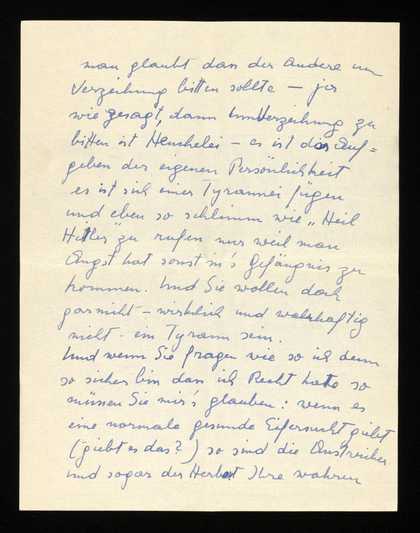 man glaubt dass der Andere um
Verzeihung bitten sollte — ja
wie gesagt, dann um Verzeihung zu
bitten ist Heuchelei – es ist das Auf=
geben der eigenen Persönlichkeit
es ist sich einer Tyrannei fügen
und eben so schlimm wie „Heil
Hitler" zu rufen nur weil man
Angst hat sonst in's Gefängnis zu
kommen. Und Sie wollen doch
garnicht – wirklich und wahrhaftig
nicht - ein Tyrann sein.
Und wenn Sie fragen wie so ich denn
so sicher bin dass ich Recht habe so
müssen Sie mir's glauben: wenn es
eine normale gesunde Eifersucht giebt
(giebt es das?) so sind die Anstreicher
und sogar der Herbert Ihre wahren